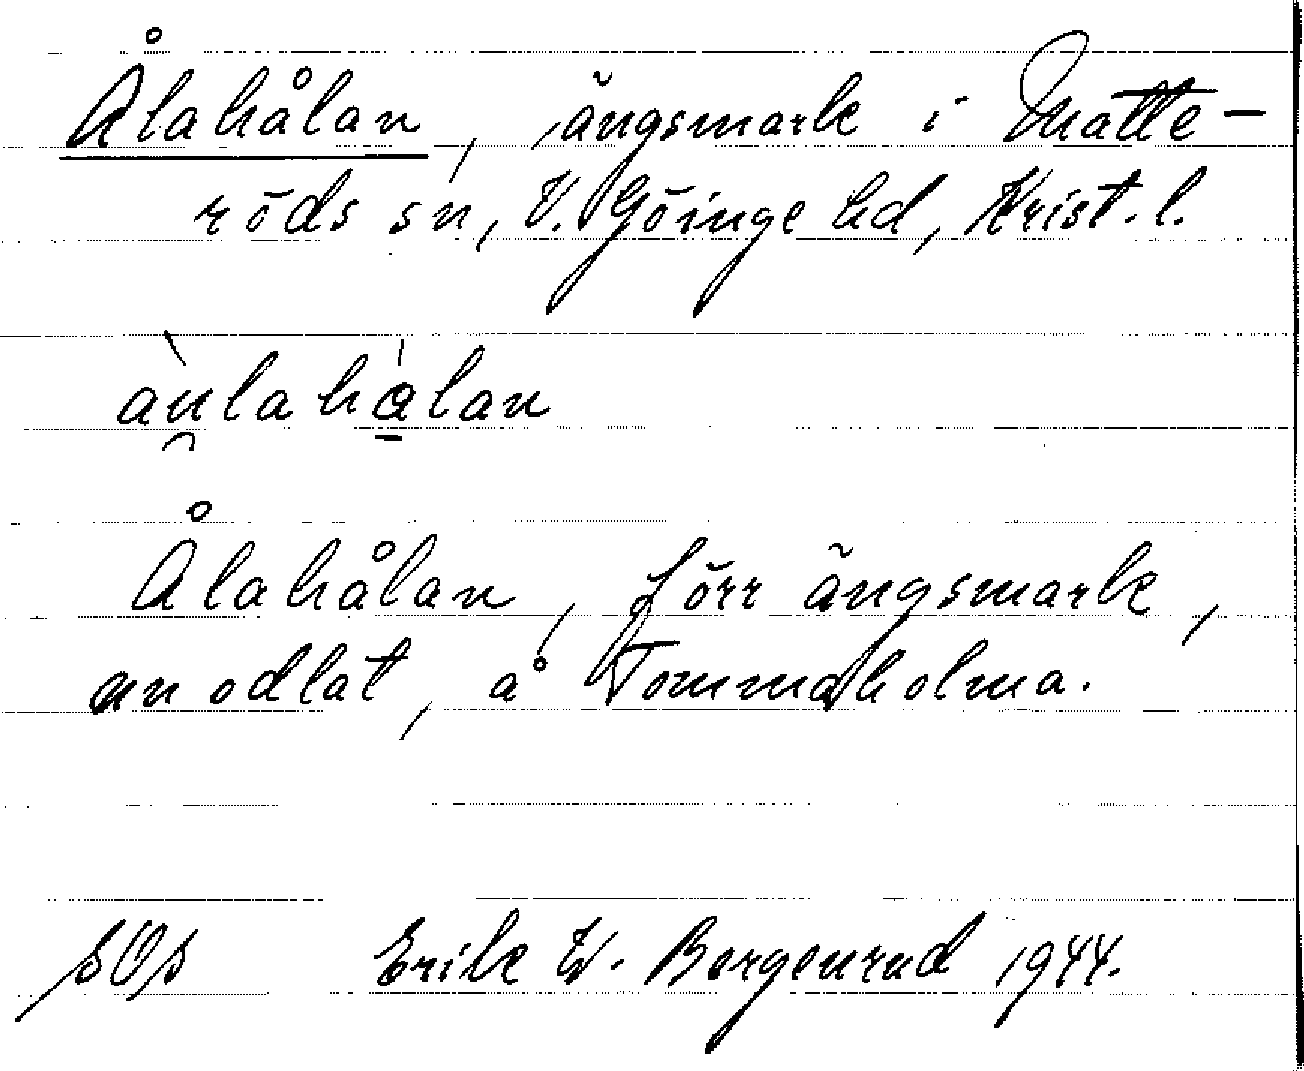 Ålahålan, ängsmark i Matte-
röds sn, V. Göinge hd, Krist. l.
àu̯lahálan
Ålahålan, förr ängsmark,
nu odlat, å Tommaholma.
SOS Erik W. Bergenrud 1944.